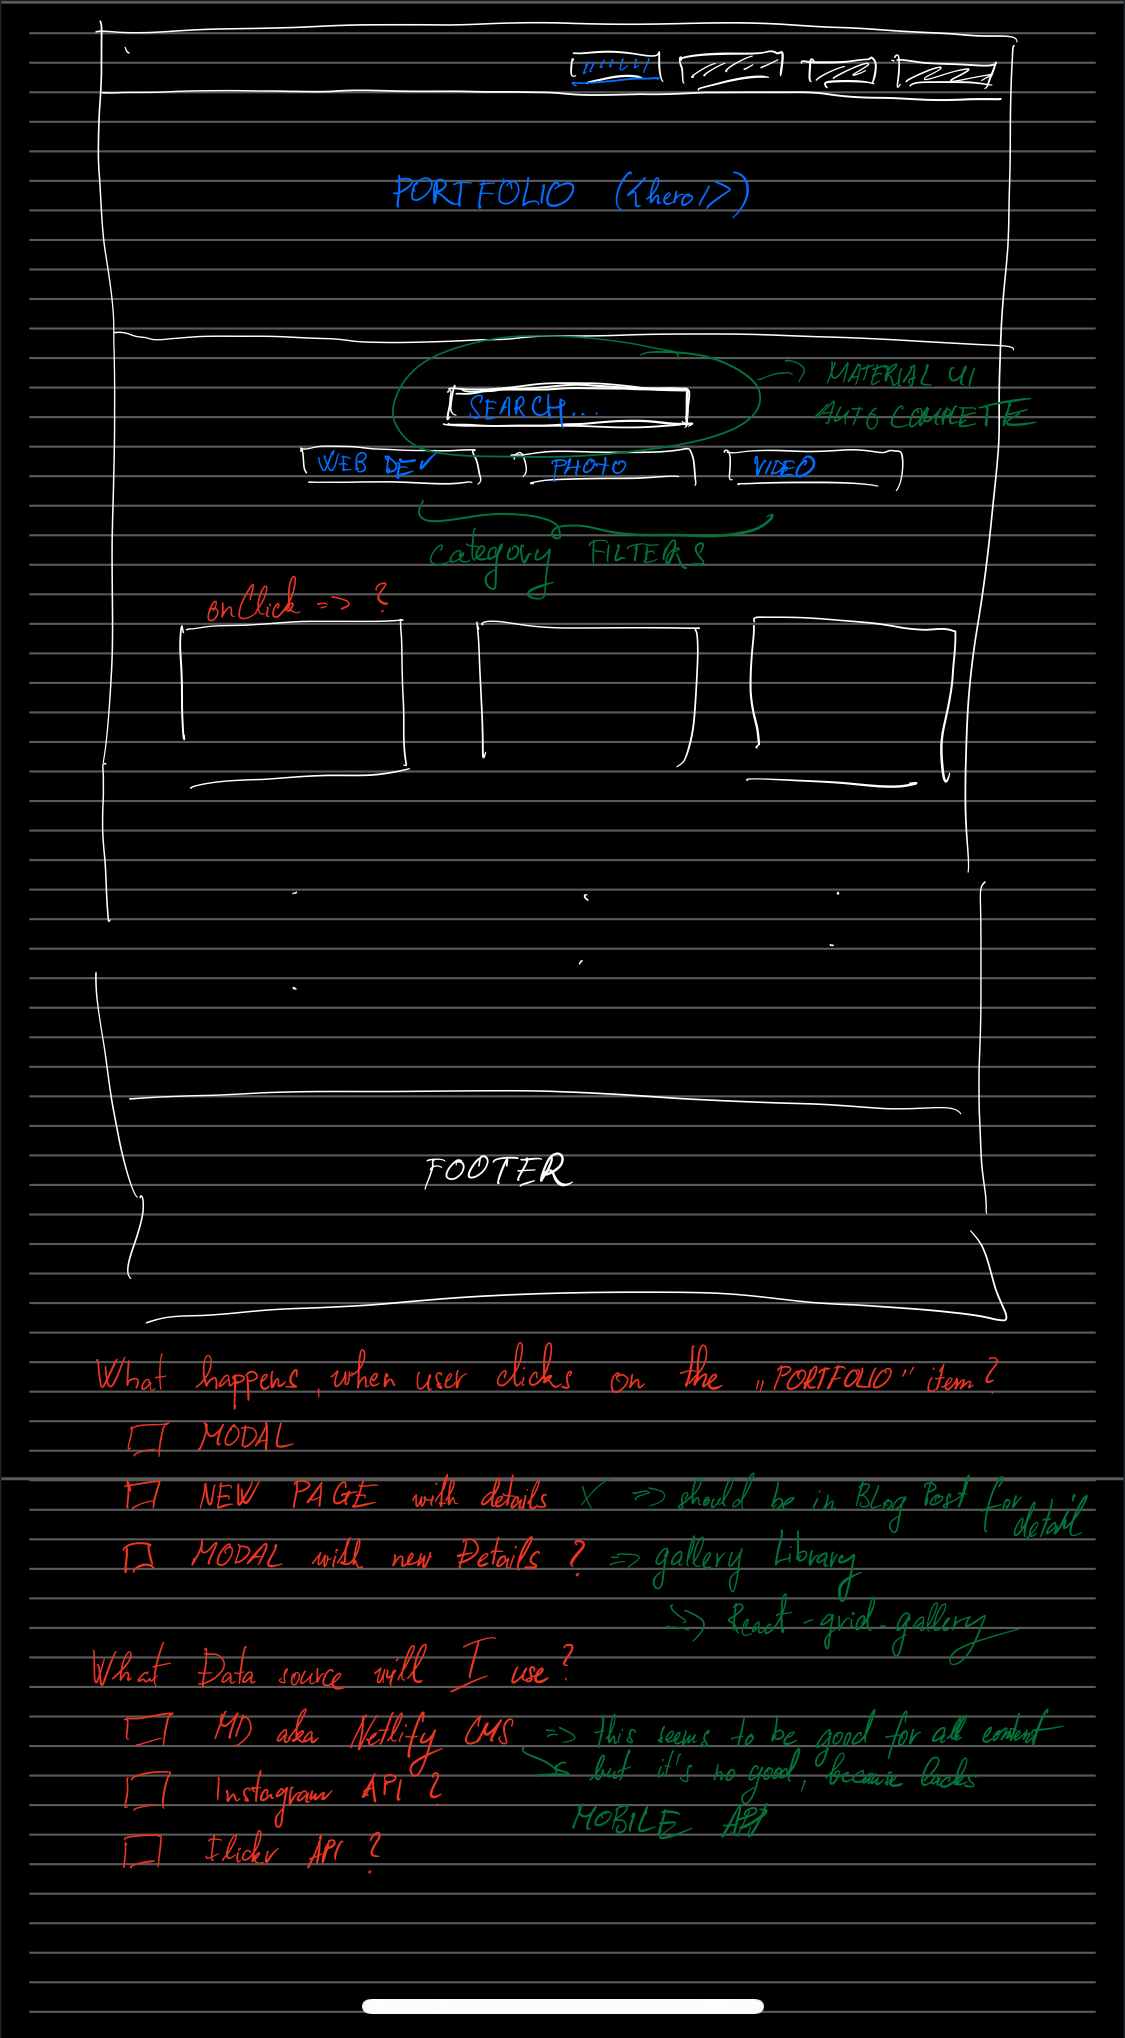 PORTFOLIO (<hero/>)
SEARCH...
=> MATERIAL UI
AUTO COMPLETTE
WEB DEV PHOTO VIDEO
category FILTERS
onClick => ?
FOOTER
What happens, when user clicks on the „PORTFOLIO" item?
MODAL
NEW PAGE with details X => should be in Blog Post for detail
MODAL with new Details ? => gallery Library
=> React-grid-gallery
What Data source will I use?
MD aka Netlify CMS => this seems to be good for all content
but it's no good, because lacks
MOBILE API
Instagram API ?
Flickr API ?